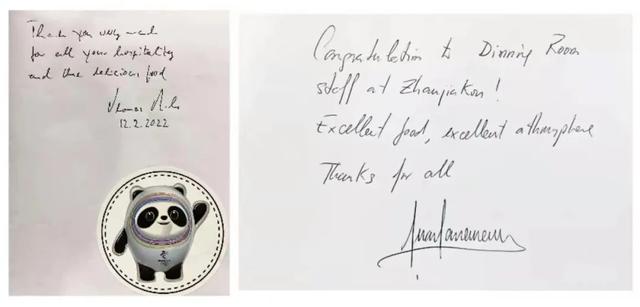 Thank you very much
for all your hospitality
and the delicious food
Thomas
12.2.2022
Congratulation to Dinning Room
staff at Zhanjiakou!
Excellent food, excellent athmosphere
Thanks for all